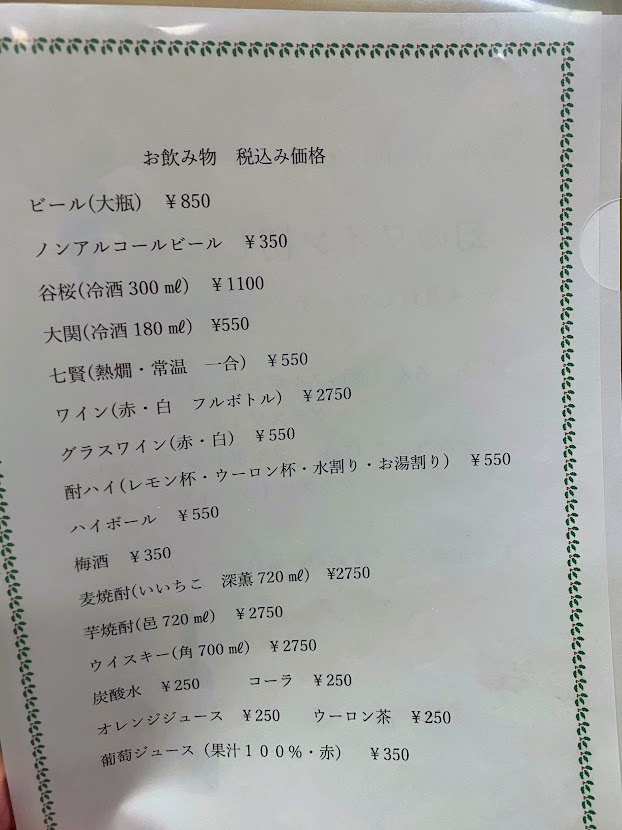 お飲み物　税込み価格
ビール(大瓶)　￥850
ノンアルコールビール　￥350
谷桜(冷酒 300 ㎖)　￥1100
大関(冷酒 180 ㎖)　¥550
七賢(熱燗・常温　一合)　￥550
ワイン(赤・白　フルボトル)　￥2750
グラスワイン(赤・白)　￥550
酎ハイ(レモン杯・ウーロン杯・水割り・お湯割り)　￥550
ハイボール　￥550
梅酒　￥350
麦焼酎(いいちこ　深薫 720 ㎖)　¥2750
芋焼酎(邑 720 ㎖)　￥2750
ウイスキー(角 700 ㎖)　￥2750
炭酸水　￥250　　コーラ　￥250
オレンジジュース　￥250　　ウーロン茶　￥250
葡萄ジュース（果汁１００％・赤）　￥350